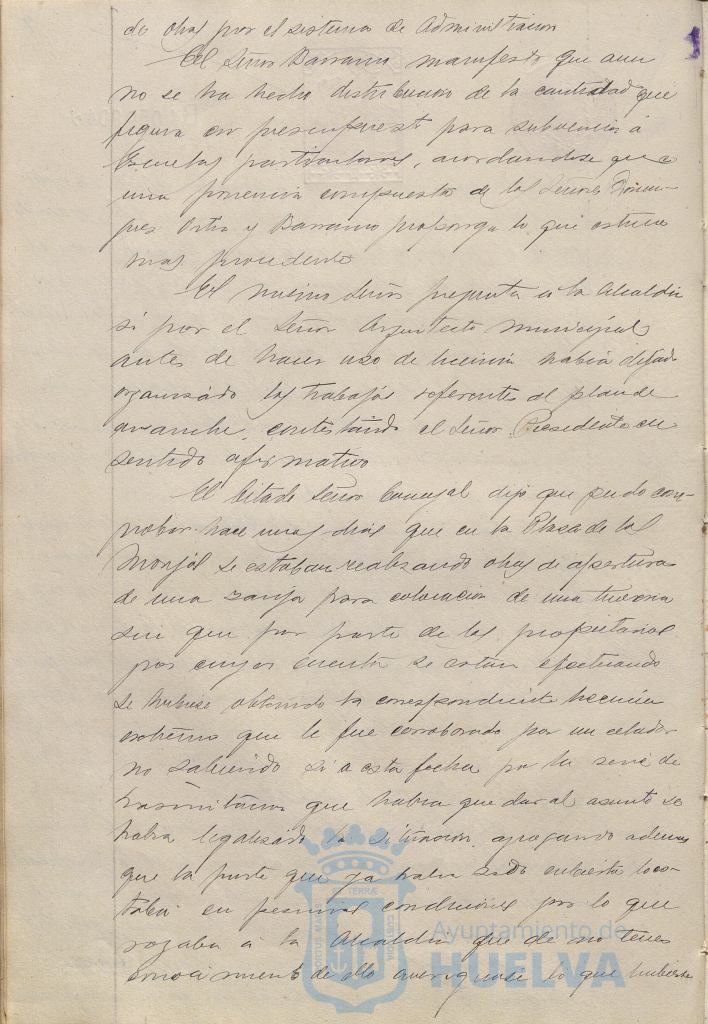 de obras por el sistema de Administracion
El Señor Barranco manifestó que aun
no se ha hecho distribucion de la cantidad que
figura en presupuesto para subvencion á
Escuelas particulares, acordandose que
una ponencia compuesta de los Señores
Ortiz y Barranco proponga lo que estime
mas procedente
El mismo Señor pregunta á la Alcaldia
si por el Señor Arquitecto municipal
antes de hacer uso de licencia habia dejado
organizado los trabajos referente al plan de
ensanche, contestando el Señor Presidente en
sentido afirmativo
El citado Señor Concejal dijo que pudo com-
probar hace unos dias que en la Plaza de las
Monjas se estaban realizando obras de apertura
de una zanja para colocacion de una tuberia
sin que por parte de los propietarios
por cuya cuenta se estan efectuando
se hubiese obtenido la correspondiente licencia
extremo que le fue corroborado por un celador
no sabiendo si a esta fecha por la serie de
tramitacion que habia que dar al asunto se
habia legalizado la situacion, agregando ademas
que la parte que ya habia sido cubierta
en pesimas condiciones por lo que
rogaba á la Alcaldia que de no tener
conocimiento de ello averiguase lo que hubiese
Ayuntamiento de
HUELVA